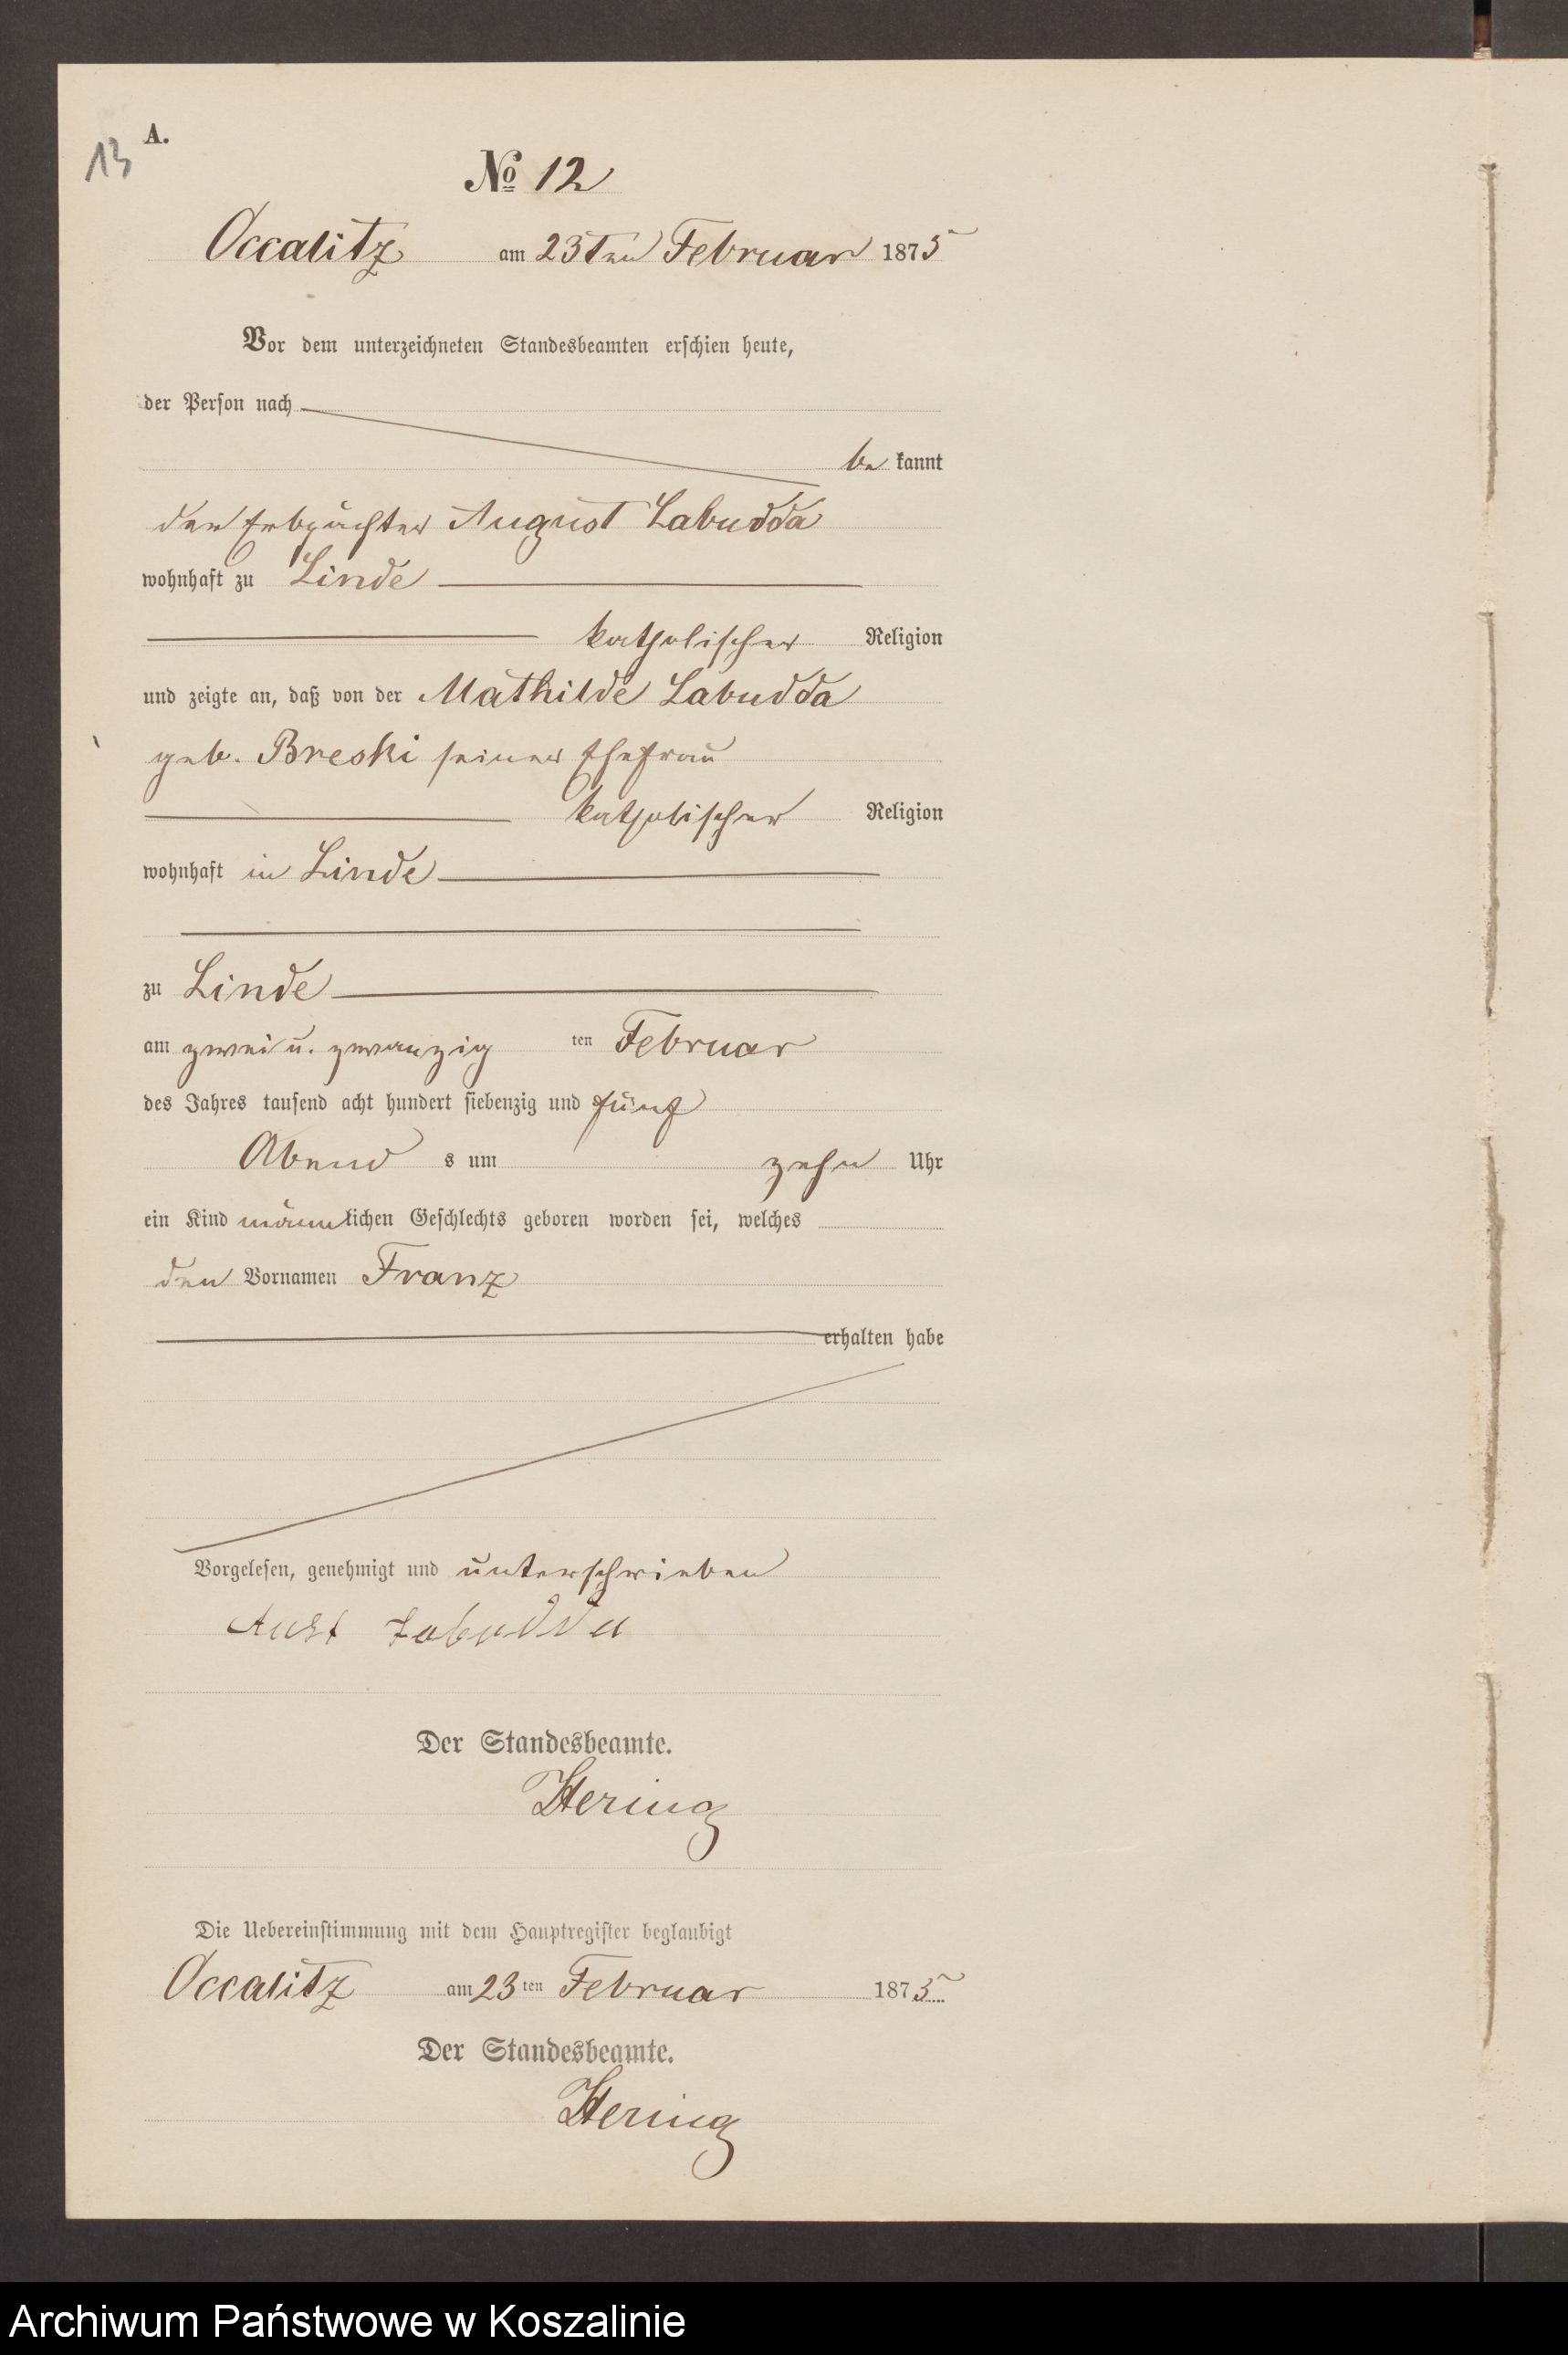 A.
13
№ 12
Occalitz am 23ten Februar 1875
Vor dem unterzeichneten Standesbeamten erschien heute,
der Person nach
be kannt
der Erbpächter August Labudda
wohnhaft zu Linde
katholischer Religion
und zeigte an, daß von der Mathilde Labudda
geb. Breski seiner Ehefrau
katholischer Religion
wohnhaft in Linde
zu Linde
am zwei u. zwanzig ten Februar
des Jahres tausend acht hundert siebenzig und fünf
Abend s um zehn Uhr
ein Kind männlichen Geschlechts geboren worden sei, welches
den Vornamen Franz
erhalten habe
Vorgelesen, genehmigt und unterschrieben
Aust Labudda
Der Standesbeamte.
Hering
Die Uebereinstimmung mit dem Hauptregister beglaubigt
Occalitz am 23 ten Februar 1875
Der Standesbeamte.
Hering
Archiwum Państwowe w Koszalinie